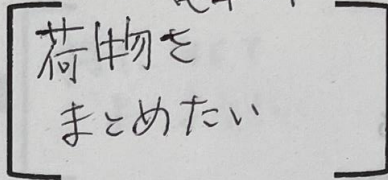 荷物を
まとめたい